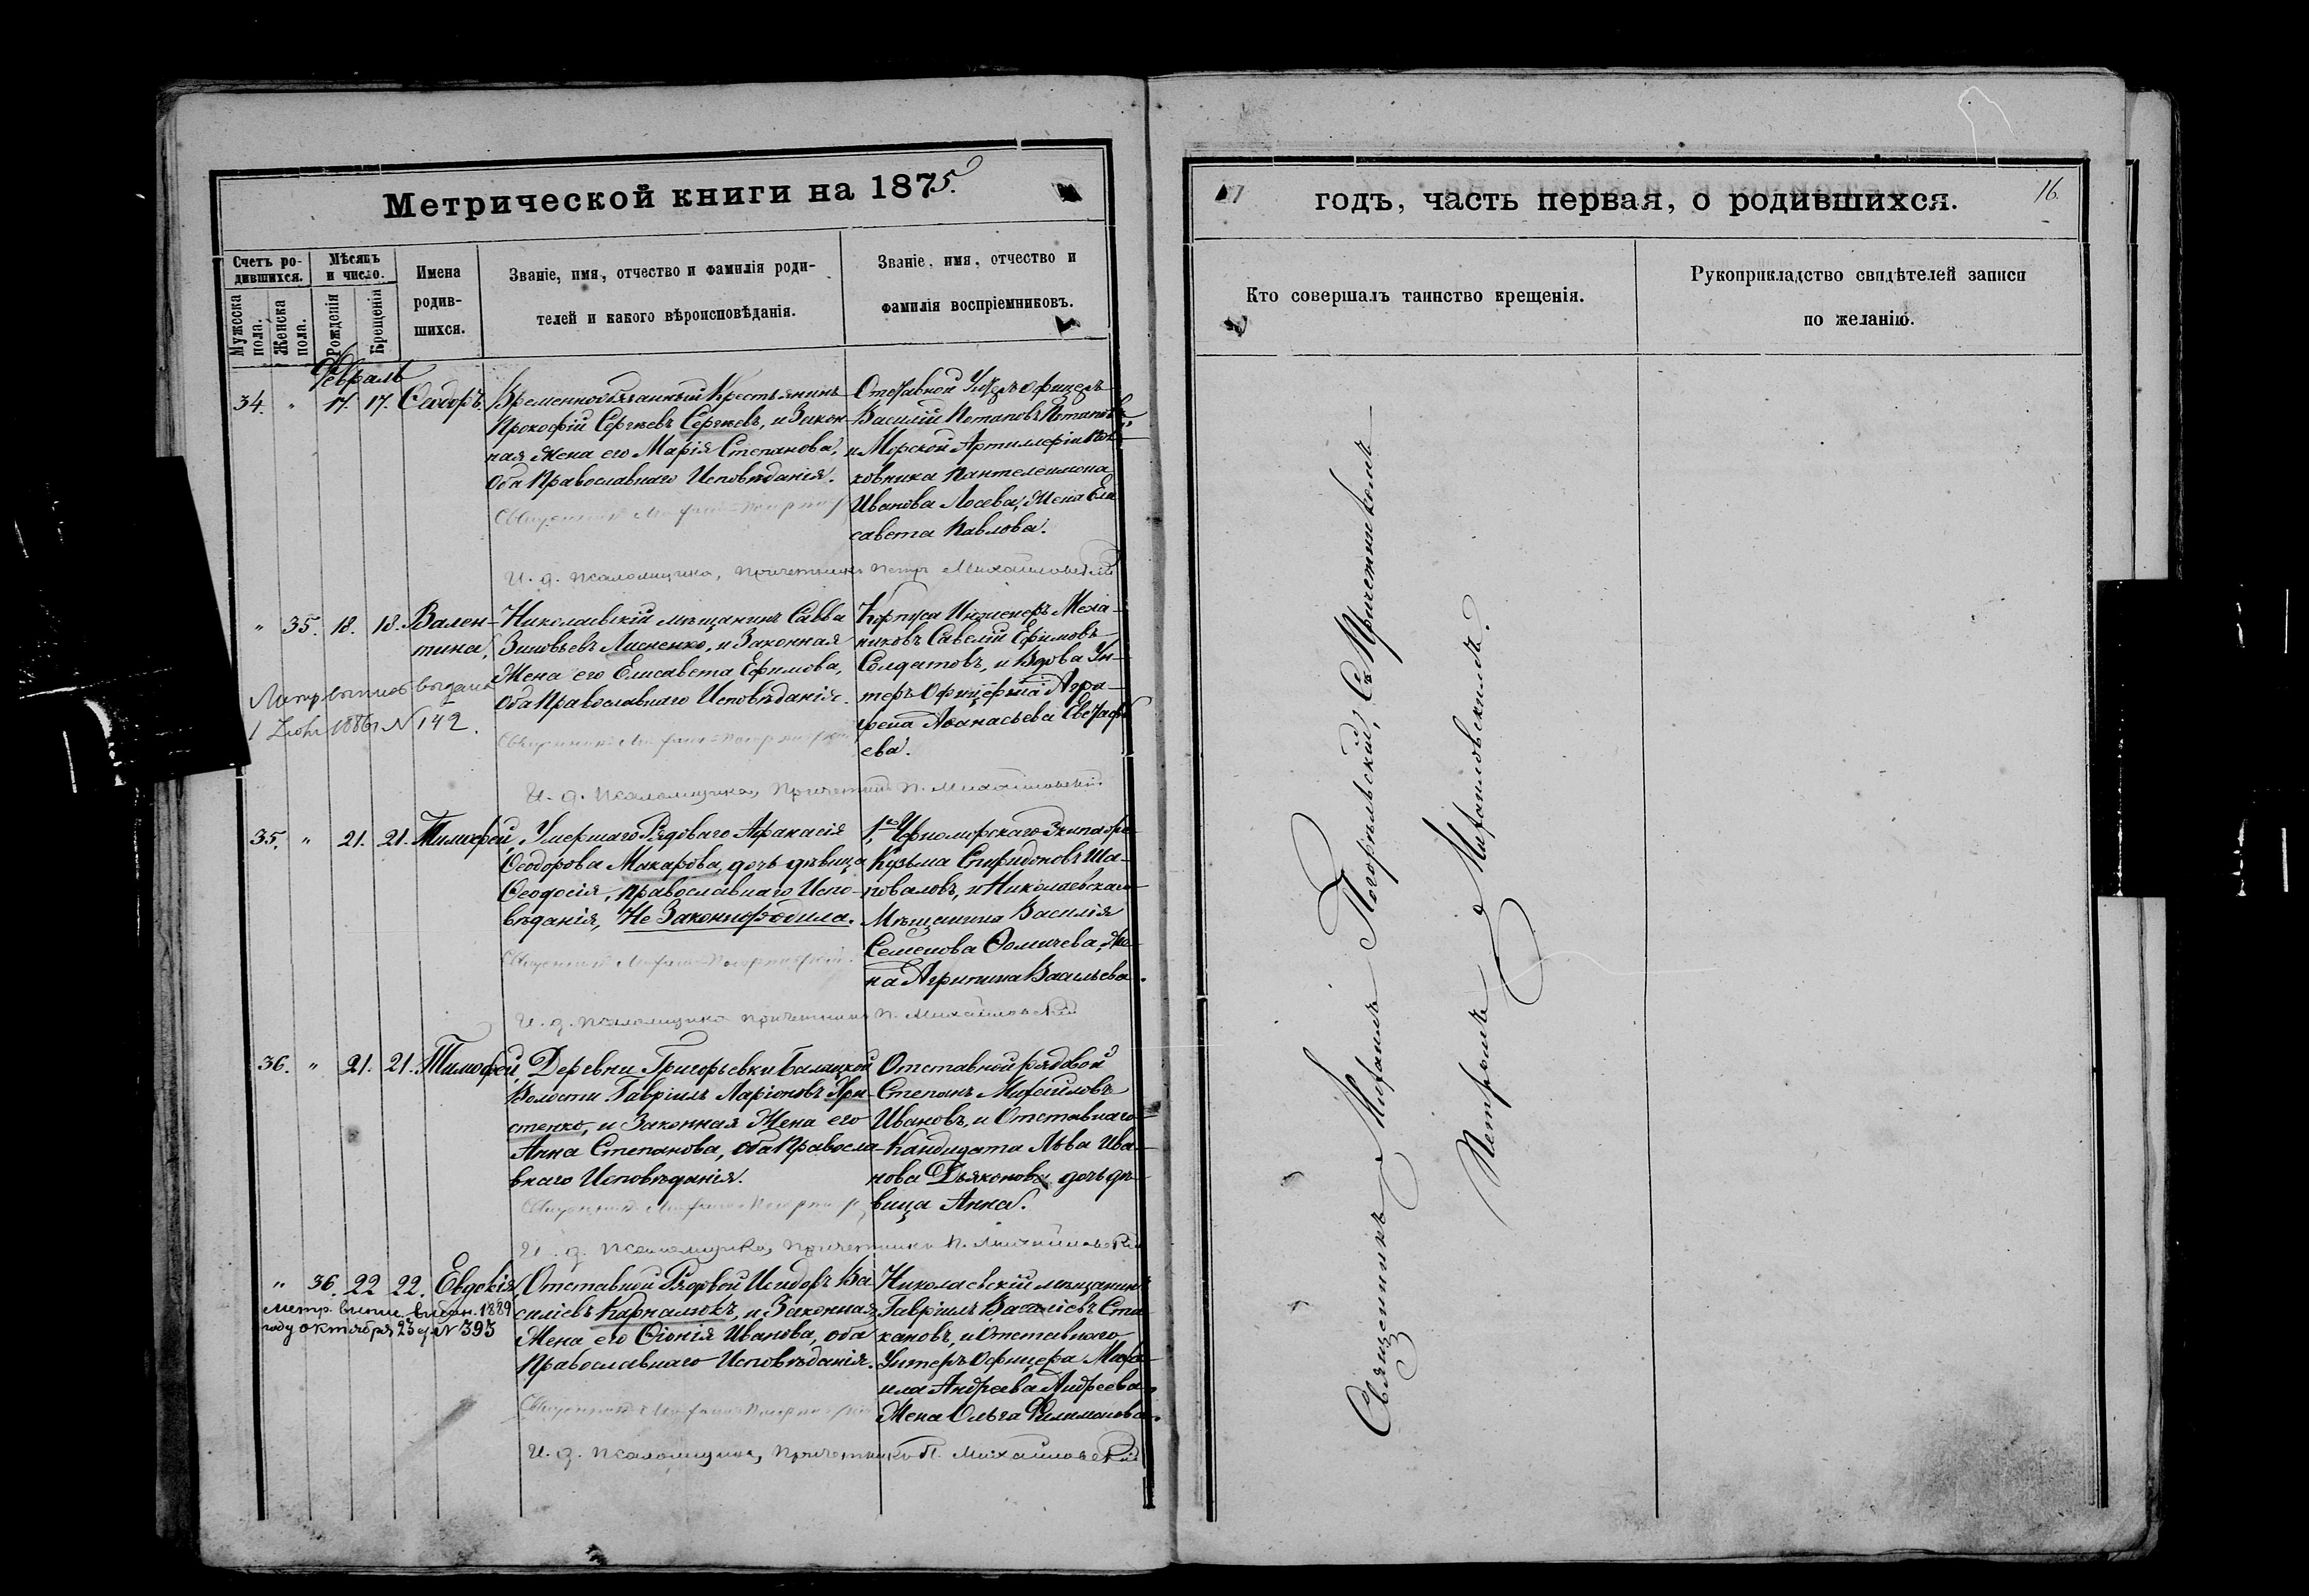 Метрической книги на 1875.
Счетъ ро-
дившихся.
Мужеска
пола.
Женска
пола.
Мѣсяцъ
и число.
Рожденія
Крещенія
Имена
родив-
шихся.
Званіе, имя, отчество и фамилія роди-
телей и какого вѣроисповѣданія.
Званіе, имя, отчество и
фамилія воспріемниковъ.
Февраль
34. " 17. 17.
Временнообязанный Крестьянинъ
Прокофій Сергѣевъ Сергѣевъ, и Закон-
ная Жена его Марія Степанова,
Оба Православнаго Исповѣданія.
Священникъ
Отставной Унтеръ Офицеръ
Василій Потаповъ Потаповъ
и Морской Артиллеріи Пол-
ковника Пантелеимона
Иванова Лосева, Жена Ели
савета Павлова.
И. д. псаломщика, причетникъ Петръ Михайловскій
" 35. 18. 18. Вален-
тина,
Николаевскій мѣщанинъ Савва
Зиновьевъ Лисненко, и Законная
Жена его Елисавета Ефимова,
Оба Православнаго Исповѣданія.
Священникъ
Корпуса Инженеръ Меха-
никовъ Савелій Ефимовъ
Солдатовъ, и Вдова Ун-
теръ Офицерша Агра-
фена Аѳанасьева
ева.
выдана
1886 г. N 142.
И. д. Псаломщика, Причетникъ П. Михайловскій.
35. " 21. 21. Тимофей,
Умершаго Рядоваго Афанасія
Ѳеодорова Макарова, дочь дѣвица
Ѳеодосія, православнаго Испо-
вѣданія, Не Законнородила.
Священникъ
1го Черноморскаго Экипажа
Кузьма Спиридоновъ Ша-
поваловъ, и Николаевскаго
Мѣщанина Василія
Семенова Ѳомичева, Же-
на Агрипина Васильева.
И. д. псаломщика причетникъ П. Михайловскій
36. " 21. 21. Тимофей,
Деревни Григорьевки Балацкой
Волости Гавріилъ Ларіоновъ Хри-
стенко, и Законная Жена его
Анна Степанова, оба Правосла-
внаго Исповѣданія.
Священникъ
Отставной рядовой
Степанъ Михайловъ
Ивановъ, и Отставнаго
Кандидата Льва Ива-
нова Дьяконова дочь дѣ-
вица Анна.
И. д. псаломщика, причетникъ П. Михайловскій
" 36. 22 22. Евдокія,
Отставной Рядовой Исидоръ Ва-
силіевъ Карналюкъ, и Законная
Жена его Ѳіонія Иванова, оба
Православнаго Исповѣданія.
Священникъ
Николаевскій мѣщанинъ
Гавріилъ Василіевъ Ста
кановъ, и Отставнаго
Унтеръ Офицера Миха-
ила Андреева Андреева,
Жена Ольга Филимонова.
метр. выпис. выдан. 1889
году октября 23 д. N 393
И. д. псаломщика, причетникъ П. Михайловскій
годъ, часть первая, о родившихся.
16.
Кто совершалъ таинство крещенія.
Рукоприкладство свидѣтелей записи
по желанію.
Священникъ Михаилъ Погорѣльскій, съ Причетникомъ
Петромъ Михайловскимъ.